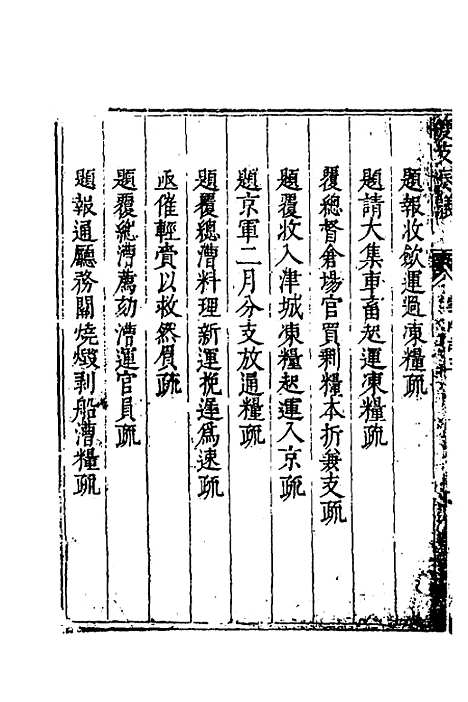 題報收飲運過凍糧疏
題請大集車畜起運凍糧疏
覆總督倉塲官買剩糧本折兼支疏
題覆收入津城凍糧起運入京疏
題京軍二月分支放通糧疏
題覆總漕料理新運挽遲為速疏
亟催輕賫以救然眉疏
題覆總漕薦劾漕運官員疏
題報通廳務關燒燬剥船漕糧疏